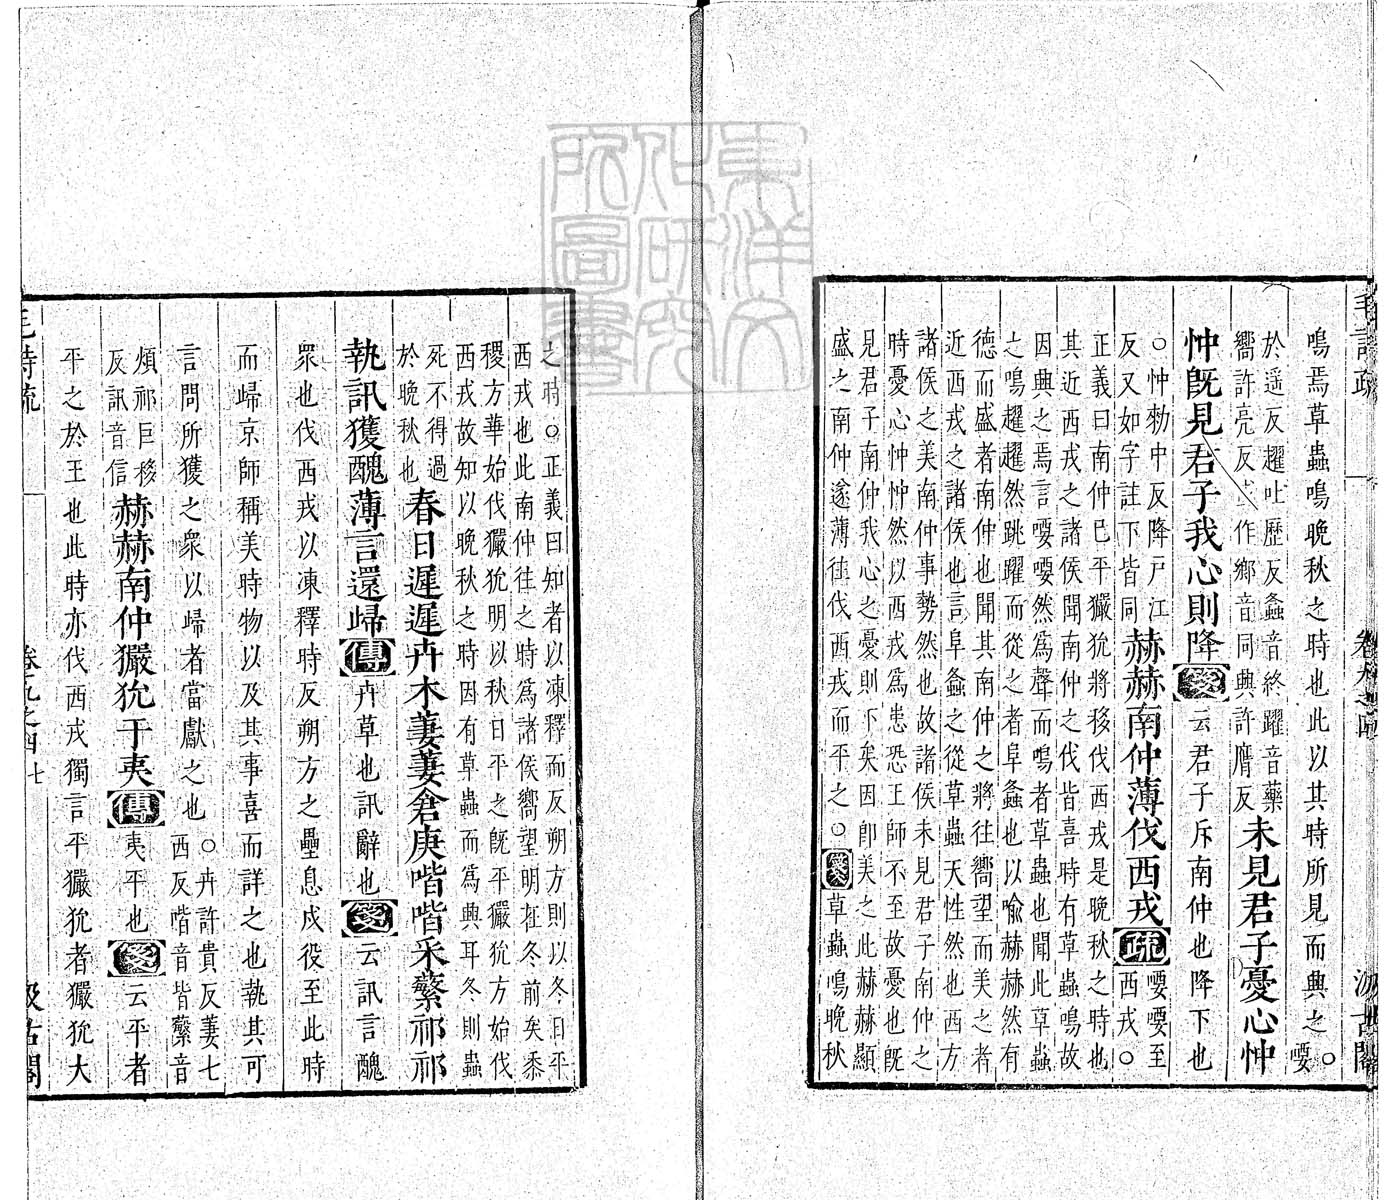 毛詩疏 卷九之四 汲古閣
鳴焉草蟲鳴晚秋之時也此以其時所見而興之○喓
於遥反趯吐歷反螽音終躍音藥
嚮許亮反 作鄉音同興許膺反
未見君子憂心忡
忡既見君子我心則降箋云君子斥南仲也降下也
○忡勑中反降戸江
反又如字註下皆同
赫赫南仲薄伐西戎疏
喓喓至
西戎○
正義曰南仲巳平玁狁將移伐西戎是晚秋之時也
其近西戎之諸侯聞南仲之伐皆喜時有草蟲鳴故
因興之焉言喓喓然爲聲而鳴者草蟲也聞此草蟲
之鳴趯趯然跳躍而從之者阜螽也以喻赫赫然有
德而盛者南仲也聞其南仲之將往嚮望而美之者
近西戎之諸侯也言阜螽之從草蟲天性然也西方
諸侯之美南仲事勢然也故諸侯未見君子南仲之
時憂心忡忡然以西戎爲患恐王師不至故憂也旣
見君子南仲我心之憂則下矣因卽美之此赫赫顯
盛之南仲遂薄往伐西戎而平之○箋草蟲鳴晚秋
之時○正義曰知者以凍釋而反朔方則以冬日平
西戎也此南仲往之時爲諸侯嚮望明在冬前矣黍
稷方華始伐玁狁明以秋日平之旣平玁狁方始伐
西戎故知以晚秋之時因有草蟲而爲興耳冬則蟲
死不得過
於晚秋也
春日遲遲卉木萋萋倉庚喈喈采蘩祁祁
執訊獲醜薄言還歸傳卉草也訊辭也箋云訊言醜
衆也伐西戎以凍釋時反朔方之壘息戍役至此時
而歸京師稱美時物以及其事喜而詳之也執其可
言問所獲之衆以歸者當獻之也
○卉許貴反萋七
西反喈音皆蘩音
煩祁巨移
反訊音信
赫赫南仲玁狁于夷傳夷平也箋云平者
平之於王也此時亦伐西戎獨言平玁狁者玁狁大
毛詩疏 卷九之四 七 汲古閣
東洋文
化研究
所圖書